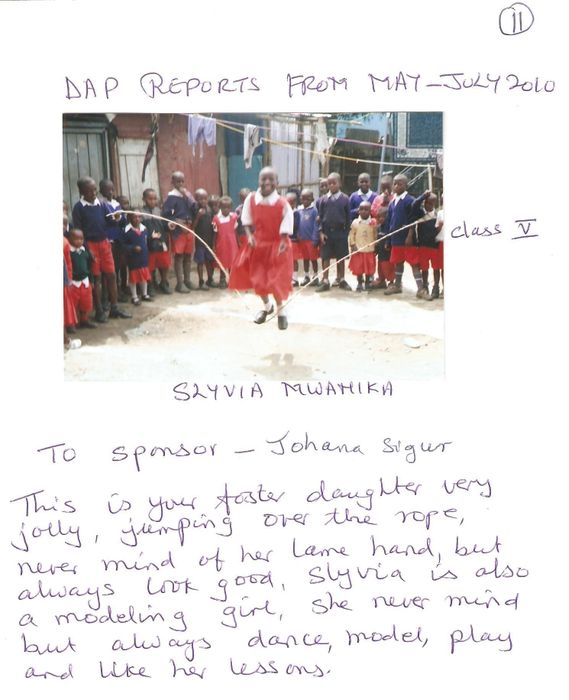 11
DAP REPORTS FROM MAY-JULY 2010
class V
SLYVIA MWAHIKA
To sponsor - Johana Sigur
This is your foster daughter very
jolly, jumping over the rope,
never mind of her lame hand, but
always look good, Slyvia is also
a modeling girl, she never mind
but always dance, model, play
and like her lessons.